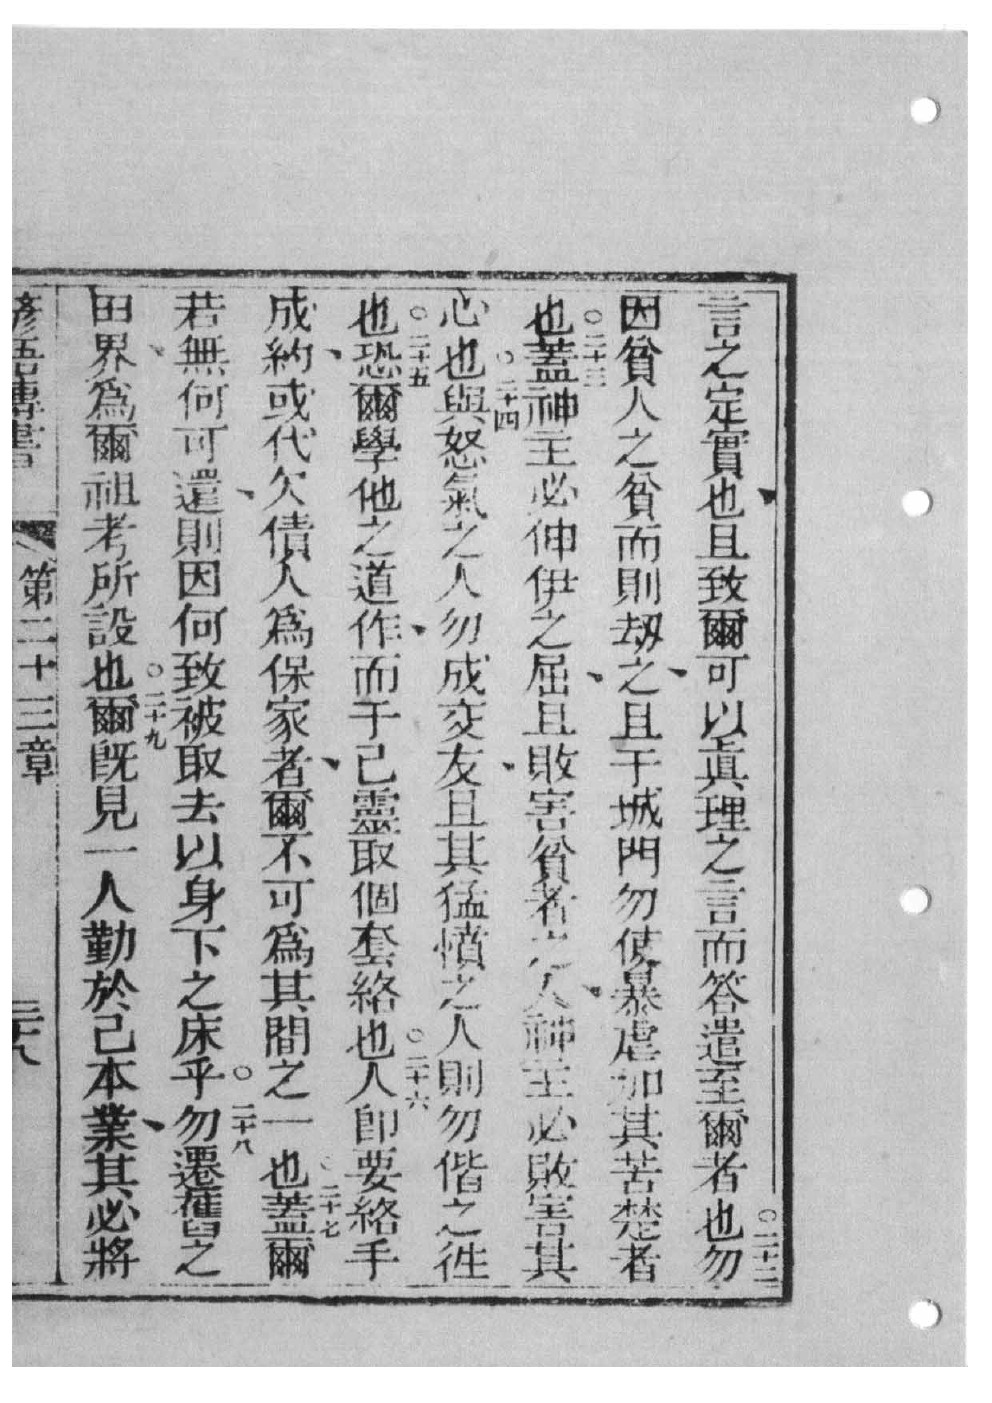 言之定實也且致爾可以眞理之言而答遣至爾者也○二十二勿
因貧人之貧而則刼之且于城門勿使暴虐加其苦楚者
也○二十三蓋神主必伸伊之屈且敗害貧者之人神主必敗害其
心也○二十四與怒氣之人勿成交友且其猛憤之人則勿偕之徃
也○二十五恐爾學他之道作而于己靈取個套絡也○二十六人卽要絡手
成納或代欠債人爲保家者爾不可爲其間之一也○二十七蓋爾
若無何可還則因何致被取去以身下之床乎○二十八勿遷舊之
田界爲爾祖考所設也○二十九爾旣見一人勤於己本業其必將
諺語傳書 第二十三章 二十八